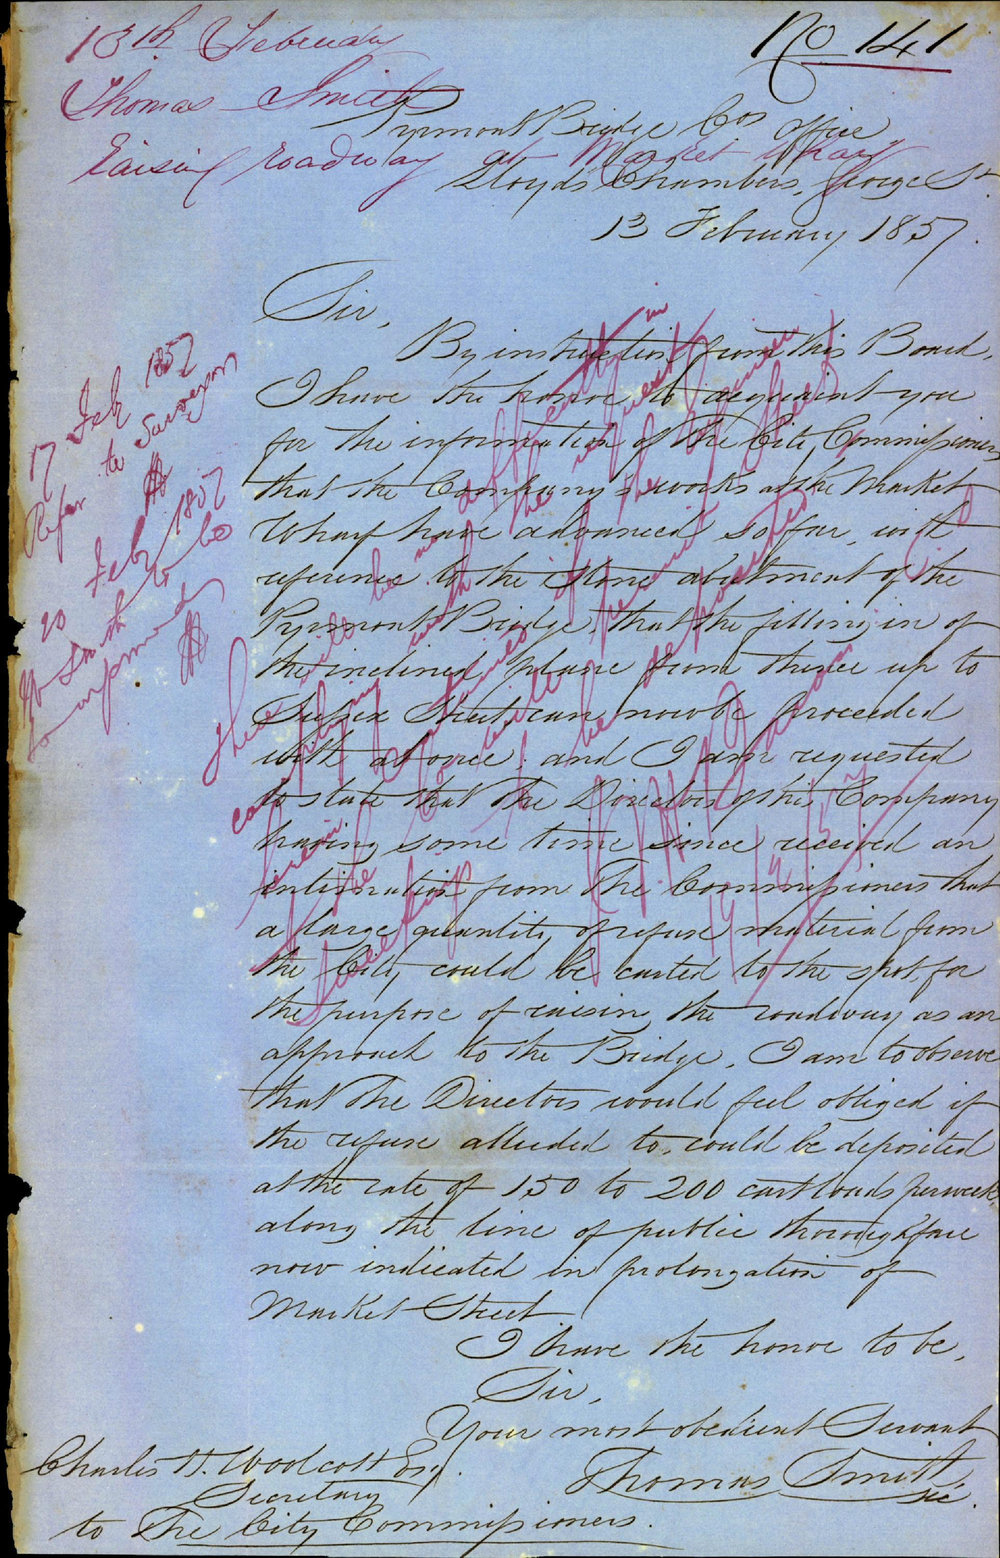 13th February
No 141
Thomas Smith
Pyrmont Bridge Cos Office
raising roadway at Market Wharf
Lloyds Chambers, George St
13 February 1857.
Sir,
By instruction from this Board,
I have the honor to acquaint you
for the information of the City Commissioners
that the Company's works at the Market
Wharf have advanced so far, with
reference to the stone abutment of the
Pyrmont Bridge, that the filling in of
the inclined plane from thence up to
Sussex Street can now be proceeded
with at once; and I am requested
to state that the Directors of this Company
having some time since received an
intimation from the Commissioners that
a large quantity of refuse material from
the City could be carted to the spot, for
the purpose of raising the roadway as an
approach to the Bridge, I am to observe
that the Directors would feel obliged if
the refuse alluded to, could be deposited
at the rate of 150 to 200 cart loads per week
along the line of public thoroughfare
now indicated in prolongation of
Market Street
I have the honor to be,
Sir,
Your most obedient Servant
Thomas Smith
Sec.
Charles H. Woolcott Esq.
Secretary
to The City Commissioners.
17 Feb 1857
Refer to Surveyor
20 Feby 1857
Mr Smith to be
so informed
there will be no difficulty in
complying with the request
herein contained if the
will permit the
to be deposited
19/2/57